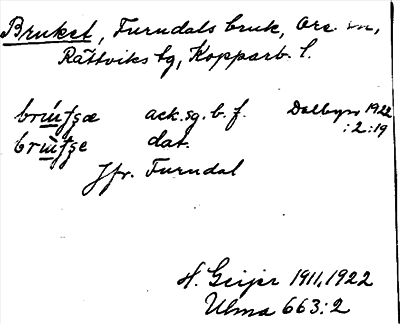 Bruket, Furndals bruk, Ore sn,
Rättviks tg, Kopparb. l.
ack. sg. b. f. Dalbyar 1922
:2:19
dat.
Jfr. Furndal
H. Geijer 1911, 1922
Ulma 663:2